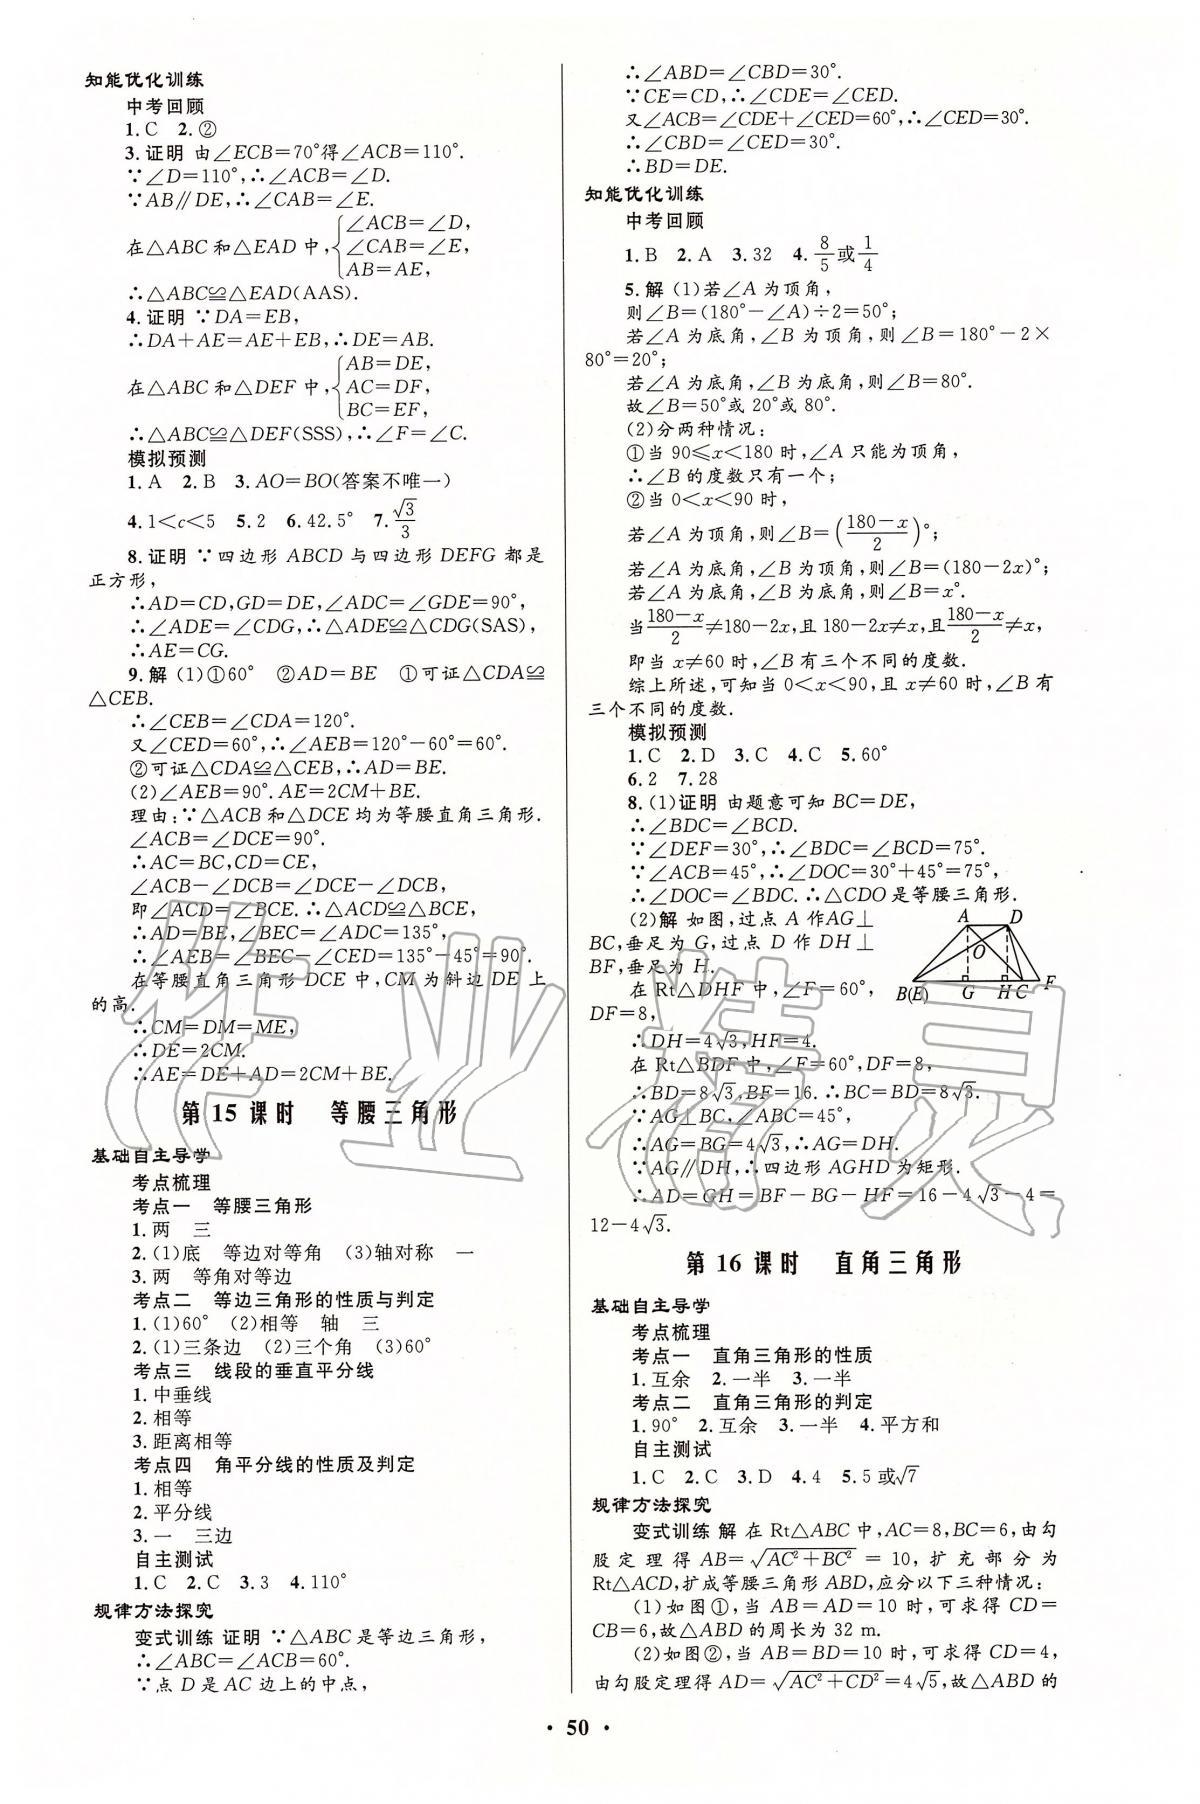 知能优化训练
中考回顾
1.C 2.②
3.证明 由∠ECB=70°得∠ACB=110°.
∵∠D=110°,∴∠ACB=∠D.
∵AB∥DE,∴∠CAB=∠E.
在△ABC和△EAD中,{∠ACB=∠D,
∠CAB=∠E,
AB=AE,
∴△ABC≌△EAD(AAS).
4.证明 ∵DA=EB,
∴DA+AE=AE+EB,∴DE=AB.
在△ABC和△DEF中,{AB=DE,
AC=DF,
BC=EF,
∴△ABC≌△DEF(SSS),∴∠F=∠C.
模拟预测
1.A 2.B 3.AO=BO(答案不唯一)
4.1<c<5 5.2 6.42.5° 7.√3/3
8.证明 ∵四边形ABCD与四边形DEFG都是
正方形,
∴AD=CD,GD=DE,∠ADC=∠GDE=90°,
∴∠ADE=∠CDG,∴△ADE≌△CDG(SAS),
∴AE=CG.
9.解 (1)①60° ②AD=BE ①可证△CDA≌
△CEB.
∴∠CEB=∠CDA=120°.
又∠CED=60°,∴∠AEB=120°-60°=60°.
②可证△CDA≌△CEB,∴AD=BE.
(2)∠AEB=90°.AE=2CM+BE.
理由:∵△ACB和△DCE均为等腰直角三角形.
∠ACB=∠DCE=90°.
∴AC=BC,CD=CE,
∠ACB-∠DCB=∠DCE-∠DCB,
即∠ACD=∠BCE.∴△ACD≌△BCE,
∴AD=BE,∠BEC=∠ADC=135°,
∴∠AEB=∠BEC-∠CED=135°-45°=90°.
在等腰直角三角形DCE中,CM为斜边DE上
的高.
∴CM=DM=ME,
∴DE=2CM.
∴AE=DE+AD=2CM+BE.
第15课时 等腰三角形
基础自主导学
考点梳理
考点一 等腰三角形
1.两 三
2.(1)底 等边对等角 (3)轴对称 一
3.两 等角对等边
考点二 等边三角形的性质与判定
1.(1)60° (2)相等 轴 三
2.(1)三条边 (2)三个角 (3)60°
考点三 线段的垂直平分线
1.中垂线
2.相等
3.距离相等
考点四 角平分线的性质及判定
1.相等
2.平分线
3.一 三边
自主测试
1.C 2.C 3.3 4.110°
规律方法探究
变式训练 证明 ∵△ABC是等边三角形,
∴∠ABC=∠ACB=60°.
∵点D是AC边上的中点,
∴∠ABD=∠CBD=30°.
∵CE=CD,∴∠CDE=∠CED.
又∠ACB=∠CDE+∠CED=60°,∴∠CED=30°.
∴∠CBD=∠CED=30°.
∴BD=DE.
知能优化训练
中考回顾
1.B 2.A 3.32 4.8/5或1/4
5.解 (1)若∠A为顶角,
则∠B=(180°-∠A)÷2=50°;
若∠A为底角,∠B为顶角,则∠B=180°-2×
80°=20°;
若∠A为底角,∠B为底角,则∠B=80°.
故∠B=50°或20°或80°.
(2)分两种情况:
①当90≤x<180时,∠A只能为顶角,
∴∠B的度数只有一个;
②当0<x<90时,
若∠A为顶角,则∠B=((180-x)/2)°;
若∠A为底角,∠B为顶角,则∠B=(180-2x)°;
若∠A为底角,∠B为底角,则∠B=x°.
当(180-x)/2≠180-2x,且180-2x≠x,且(180-x)/2≠x,
即当x≠60时,∠B有三个不同的度数.
综上所述,可知当0<x<90,且x≠60时,∠B有
三个不同的度数.
模拟预测
1.C 2.D 3.C 4.C 5.60°
6.2 7.28
8.(1)证明 由题意可知BC=DE,
∴∠BDC=∠BCD.
∵∠DEF=30°,∴∠BDC=∠BCD=75°.
∵∠ACB=45°,∴∠DOC=30°+45°=75°,
∴∠DOC=∠BDC.∴△CDO是等腰三角形.
(2)解 如图,过点A作AG⊥
BC,垂足为G,过点D作DH⊥
BF,垂足为H.
在Rt△DHF中,∠F=60°,
DF=8,
A D
O
B(E) G H C F
∴DH=4√3,HF=4.
在Rt△BDF中,∠F=60°,DF=8,
∴BD=8√3,BF=16.∴BC=BD=8√3.
∵AG⊥BC,∠ABC=45°,
∴AG=BG=4√3,∴AG=DH.
∵AG∥DH,∴四边形AGHD为矩形.
∴AD=GH=BF-BG-HF=16-4√3-4=
12-4√3.
第16课时 直角三角形
基础自主导学
考点梳理
考点一 直角三角形的性质
1.互余 2.一半 3.一半
考点二 直角三角形的判定
1.90° 2.互余 3.一半 4.平方和
自主测试
1.C 2.C 3.D 4.4 5.5或√7
规律方法探究
变式训练 解 在Rt△ABC中,AC=8,BC=6,由勾
股定理得AB=√(AC²+BC²)=10,扩充部分为
Rt△ACD,扩成等腰三角形ABD,应分以下三种情况:
(1)如图①,当AB=AD=10时,可求得CD=
CB=6,故△ABD的周长为32 m.
(2)如图②,当AB=BD=10时,可求得CD=4,
由勾股定理得AD=√(AC²+CD²)=4√5,故△ABD的
·50·
作业精灵